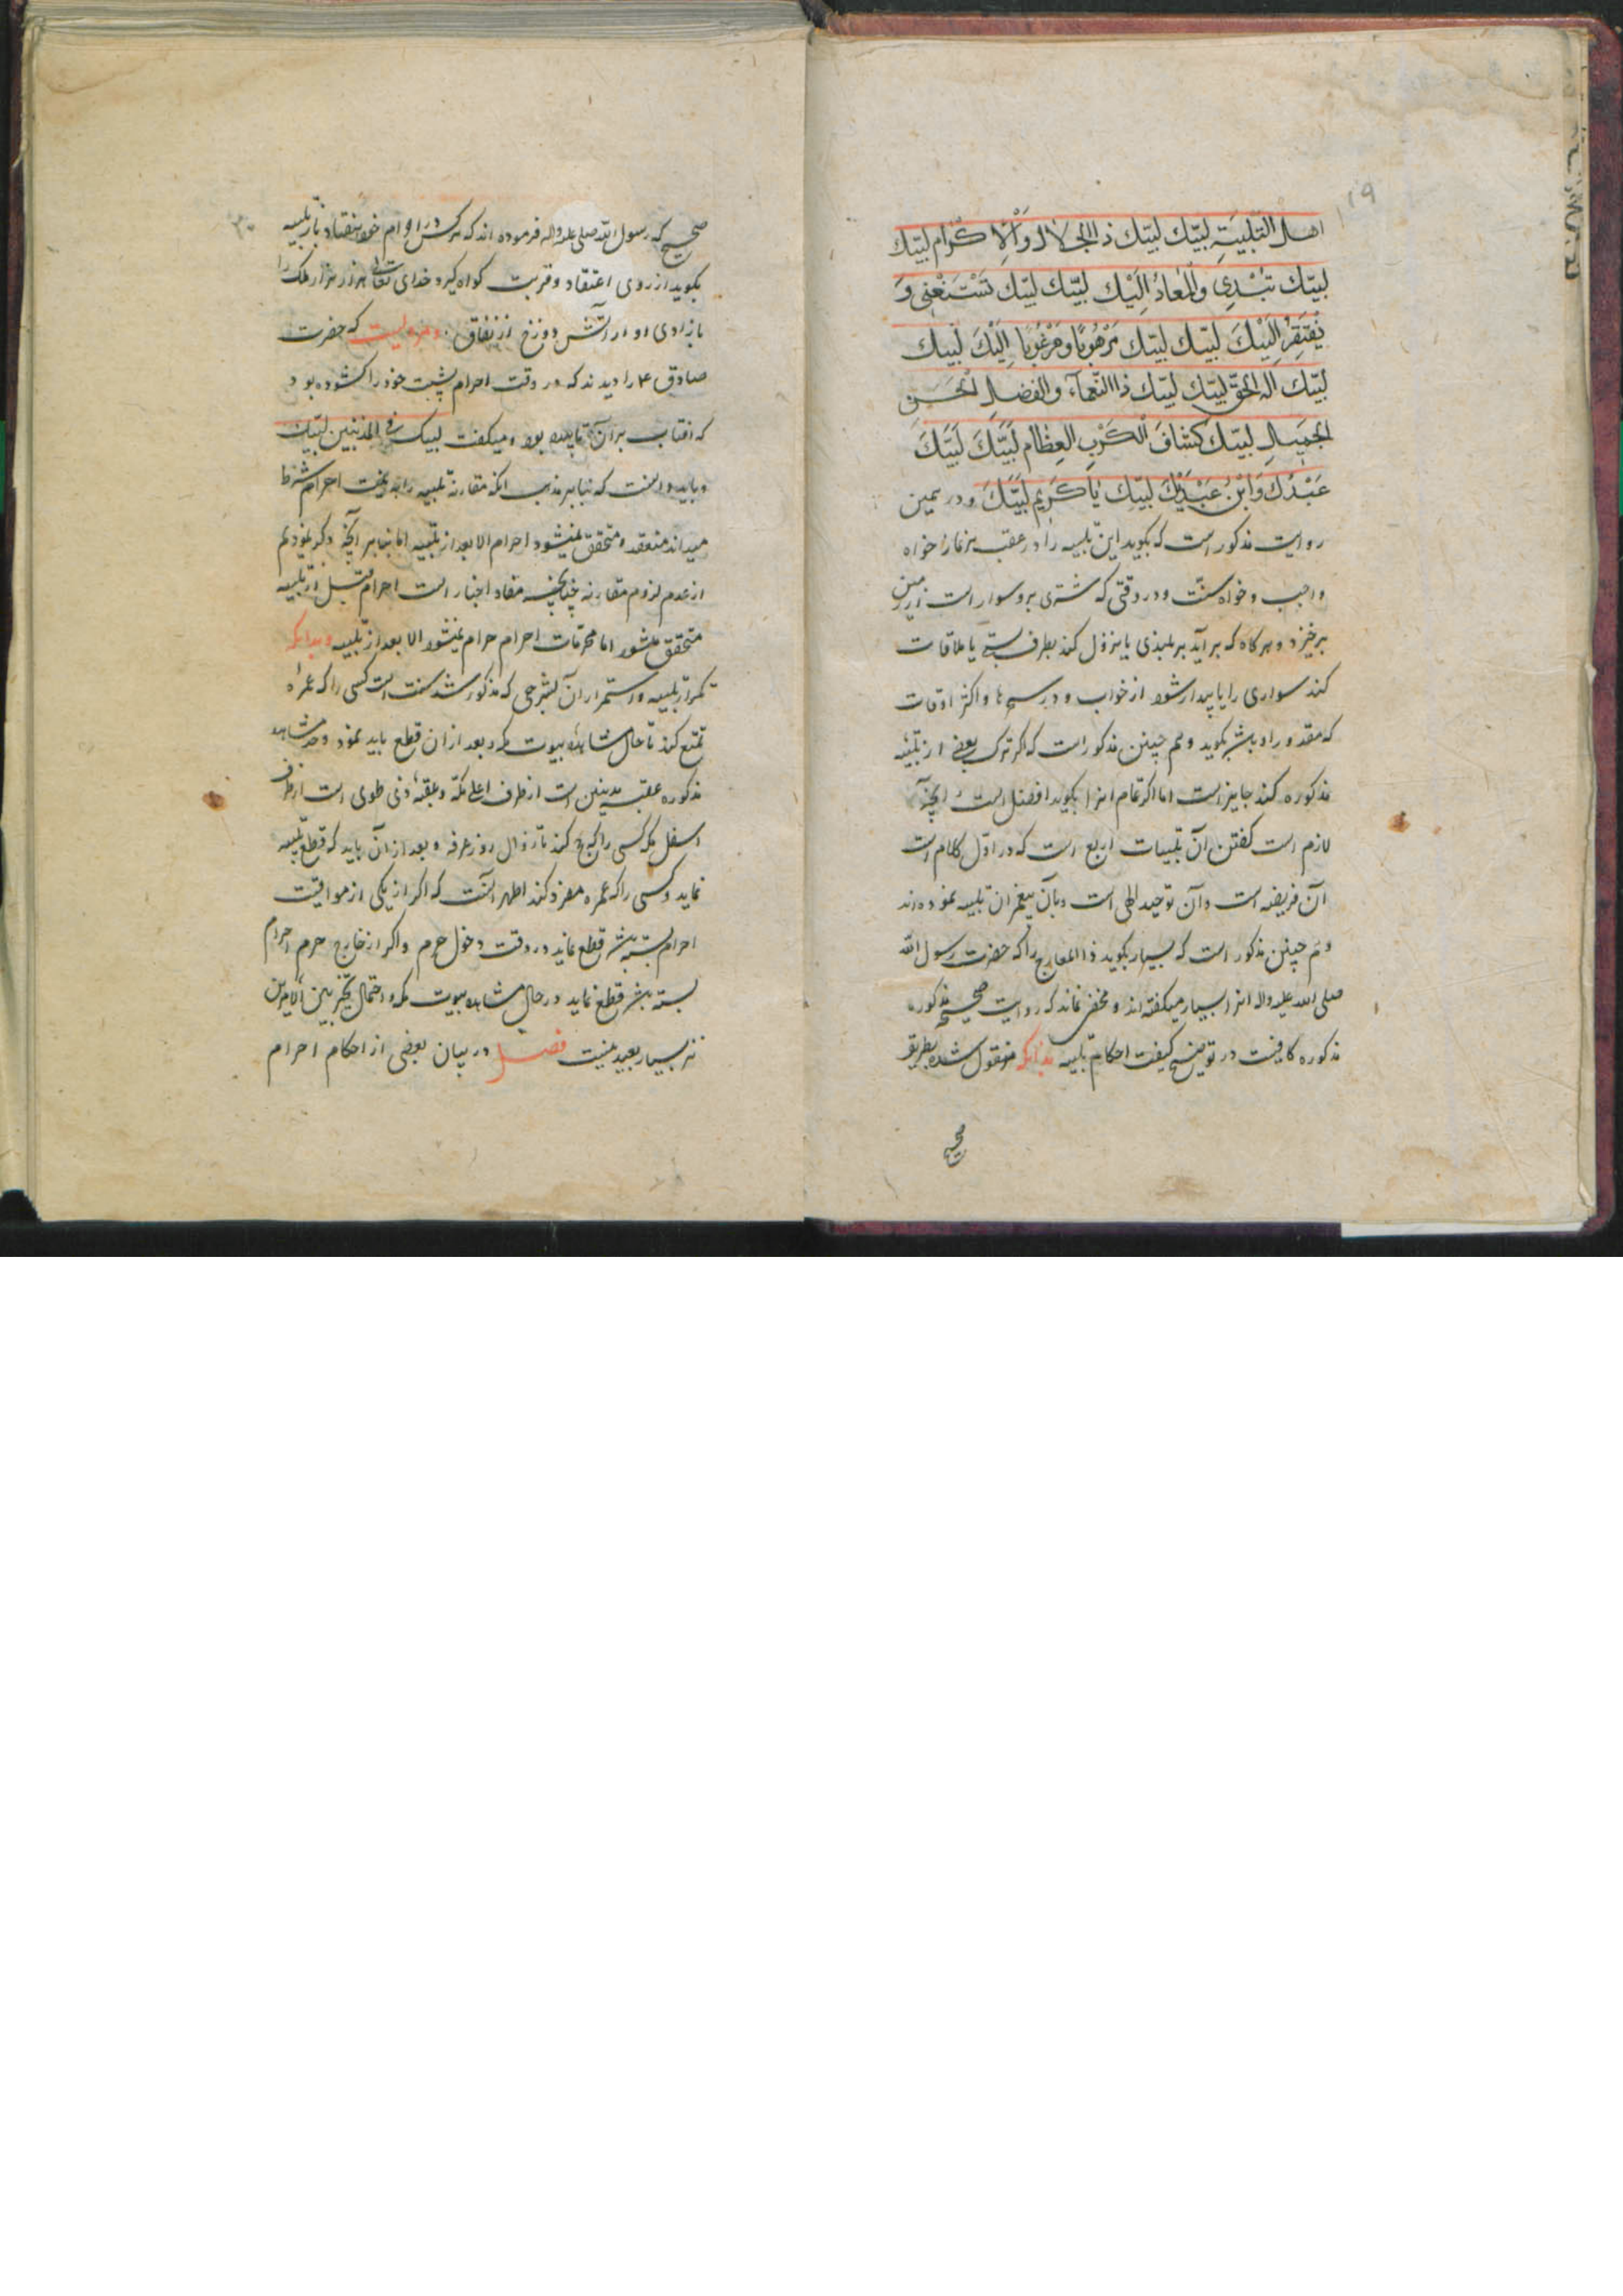 ۱۹
اهل التَّلبِيَةِ لبّيك لبّيك ذا الجلال وَالْاِكْرامِ لبّيك
لبّيك تُبْدِئُ وَالْمَعادُ اِلَيْك لبّيك لبّيك تَسْتَغْنِی وَ
يُفْتَقَرُ اِلَيْكَ لبّيك لبّيك مَرْهُوبًا ومَرْغُوبًا اِلَيْكَ لَبّيك
لبّيك اله الحقّ لبّيك لبّيك ذا النّعمآء والفضل الحَسَنِ
الجميل لبّيك كشّافَ الْكَرْبِ العِظام لَبَّيْكَ لَبَّيْكَ
عَبْدُكَ وَابْنُ عَبْدَيْكَ لبّيك يا كَرِيمُ لَبَّيْكَ و در همین
روایت مذکور است که بکوید این تلبیه را در عقب هر نماز خواه
واجب و خواه سنّت و در وقتی که شتری برو سوار است از زمین
برخیزد و هرکاه که بر آید بر بلندی یا نزول کند بطرف پستی یا ملاقات
کند سواری را یا بیدار شود از خواب و در سحرها و اکثر اوقات
که مقدور او باشد بکوید و هم چنین مذکور است که اکر ترک بعضی از تلبیهٔ
مذکوره کند جایز است اما اکر تمام انرا بکوید افضل است و آنچه
لازم است کفتن آن تلبیات اربع است که در اول کلام است
آن فریضه است و آن توحید الهی است و بآن پیغمبران تلبیه نموده‌اند
و هم چنین مذکور است که بسیار بکوید ذا المعارج را که حضرت رسول الله
صلی الله علیه واله انرا بسیار میکفته‌اند و مخفی نماند که روایت صحیح مذکوره
مذکوره کافیست در توضیح کیفیت احکام تلبیه بدانکه منقول شده بطریق
صحیح
۲۰
صحیح که رسول الله صلی علیه واله فرموده اند که هرکس در احرام خود هفتاد بار تلبیه
بکوید از روی اعتقاد و قربت کواه کیرد خدای تعالی هزار هزار ملک را
بازادی او از آتش دوزخ از نفاق و مرویست که حضرت
صادق ع را دیدند که در وقت احرام پشت خود را کشوده بود
که افتاب بر آن تابیده بود و میکفت لبیک فی المذنبین لبّیک
و باید دانست که بنابر مذهب انکه مقارنه تلبیه را بنیت احرام شرط
میداند منعقد و متحقق نمیشود احرام الا بعد از تلبیه اما بنابر آنچه ذکر نمودیم
از عدم لزوم مقارنه چنانچه مفاد اخبار است احرام قبل از تلبیه
متحقق میشود اما محرمات احرام حرام نمیشود الا بعد از تلبیه و بدانکه
تکرار تلبیه و استمرار آن بشرحی که مذکور شد سنت است کسی را که عمرهٔ
تمتع کند تا حال مشاهده بیوت مکه و بعد از ان قطع باید نمود و حد مشاهده
مذکوره عقبه مدنیین است از طرف اعلی مکّه و عقبهٔ ذی طوی است از طرف
اسفل مکه کسی را که حج کند تا زوال روز عرفه و بعد از آن باید که قطع تلبیه
نماید و کسی را که عمره مفرد کند اظهر انست که اکر از یکی از مواقیت
احرام بسته باشد قطع نماید در وقت دخول حرم و اکر از خارج حرم احرام
بسته باشد قطع نماید در حال مشاهده بیوت مکه و احتمال تخییر بین الامرین
نیز بسیار بعید نیست فصل در بیان بعضی از احکام احرام